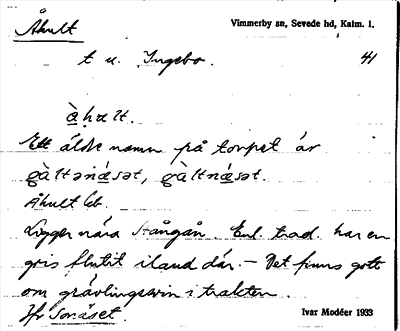 Åhult
Vimmerby sn, Sevede hd, Kalm. l.
t u. Ingebo.
41
à̱hʊlt.
Ett äldre namn på torpet är
gàltəná̱sət, gàltná̱sət.
Åhult Ek.
Ligger nära Stångån. Enl. trad. har en
gris flutit iland där. — Det finns gott
om grävlingssvin i trakten.
Jfr Sornäset.
Ivar Modéer 1933